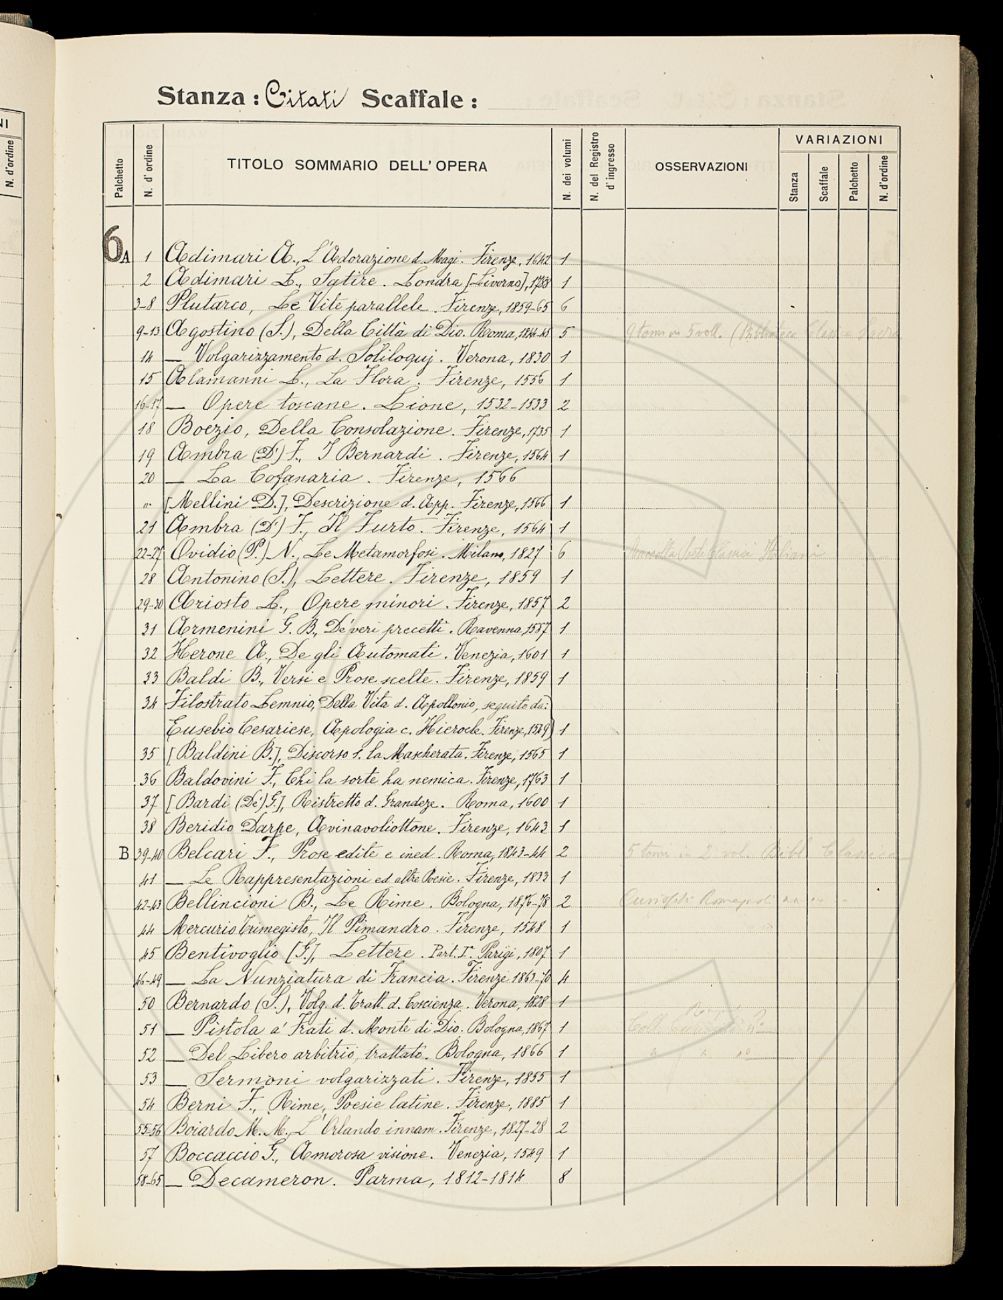 NI
N. d'ordine
Stanza: Citati Scaffale:
Palchetto
N. d'ordine
TITOLO SOMMARIO DELL'OPERA
N. dei volumi
N. del Registro d'ingresso
OSSERVAZIONI
VARIAZIONI
Stanza
Scaffale
Palchetto
N. d'ordine
6A 1 Adimari A., L'Adorazione d. Magi. Firenze, 1642 1
2 Adimari L., Satire. Londra [Livorno], 1788 1
3-8 Plutarco, Le Vite parallele. Firenze, 1859-65 6
9-13 Agostino (S.), Della Città di Dio. Roma, 5 9 tomi in 5 voll. (Biblioteca Classica Sacra
14 — Volgarizzamento d. Soliloquj. Verona, 1830 1
15 Alamanni L., La Flora. Firenze, 1556 1
16-17 — Opere toscane. Lione, 1532-1533 2
18 Boezio, Della Consolazione. Firenze, 1735 1
19 Ambra (D') F., I Bernardi. Firenze, 1564 1
20 — La Cofanaria. Firenze, 1566
" [Mellini D.], Descrizione d. App. Firenze, 1566 1
21 Ambra (D') F., Il Furto. Firenze, 1564 1
22-27 Ovidio (P.) N., Le Metamorfosi. Milano, 1827 6 Classici Italiani
28 Antonino (S.), Lettere. Firenze, 1859 1
29-30 Ariosto L., Opere minori. Firenze, 1857 2
31 Armenini G. B., De' veri precetti. Ravenna, 1587 1
32 Herone A., De gli Automati. Venezia, 1601 1
33 Baldi B., Versi e Prose scelte. Firenze, 1859 1
34 Filostrato Lemnio, Della Vita d. Apollonio, seguito da:
Eusebio Cesariese, Apologia c. Hierocle. Firenze, 1549) 1
35 [Baldini B.], Discorso s. la Mascherata. Firenze, 1565 1
36 Baldovini F., Chi la sorte ha nemica. Firenze, 1763 1
37 [Bardi (De') G.], Ristretto d. Grandeze. Roma, 1600 1
38 Beridio Darpe, Avinavoliottone. Firenze, 1643 1
B 39-40 Belcari F., Prose edite e ined. Roma, 1843-44 2 5 tomi in 2 vol. Bibl. Classica
41 — Le Rappresentazioni ed altre Poesie. Firenze, 1833 1
42-43 Bellincioni B., Le Rime. Bologna, 1876-78 2
44 Mercurio Trimegisto, Il Pimandro. Firenze, 1548 1
45 Bentivoglio [G.], Lettere. Part. I. Parigi, 1807 1
46-49 — La Nunziatura di Francia. Firenze 1863-70 4
50 Bernardo (S.), Volg. d. Tratt. d. Coscienza. Verona, 1828 1
51 — Pistola a' Frati d. Monte di Dio. Bologna, 1867 1
52 — Del Libero arbitrio, trattato. Bologna, 1866 1
53 — Sermoni volgarizzati. Firenze, 1855 1
54 Berni F., Rime, Poesie latine. Firenze, 1885 1
55-56 Boiardo M. M., L'Orlando innam. Firenze, 1827-28 2
57 Boccaccio G., Amorosa visione. Venezia, 1549 1
58-65 — Decameron. Parma, 1812-1814 8